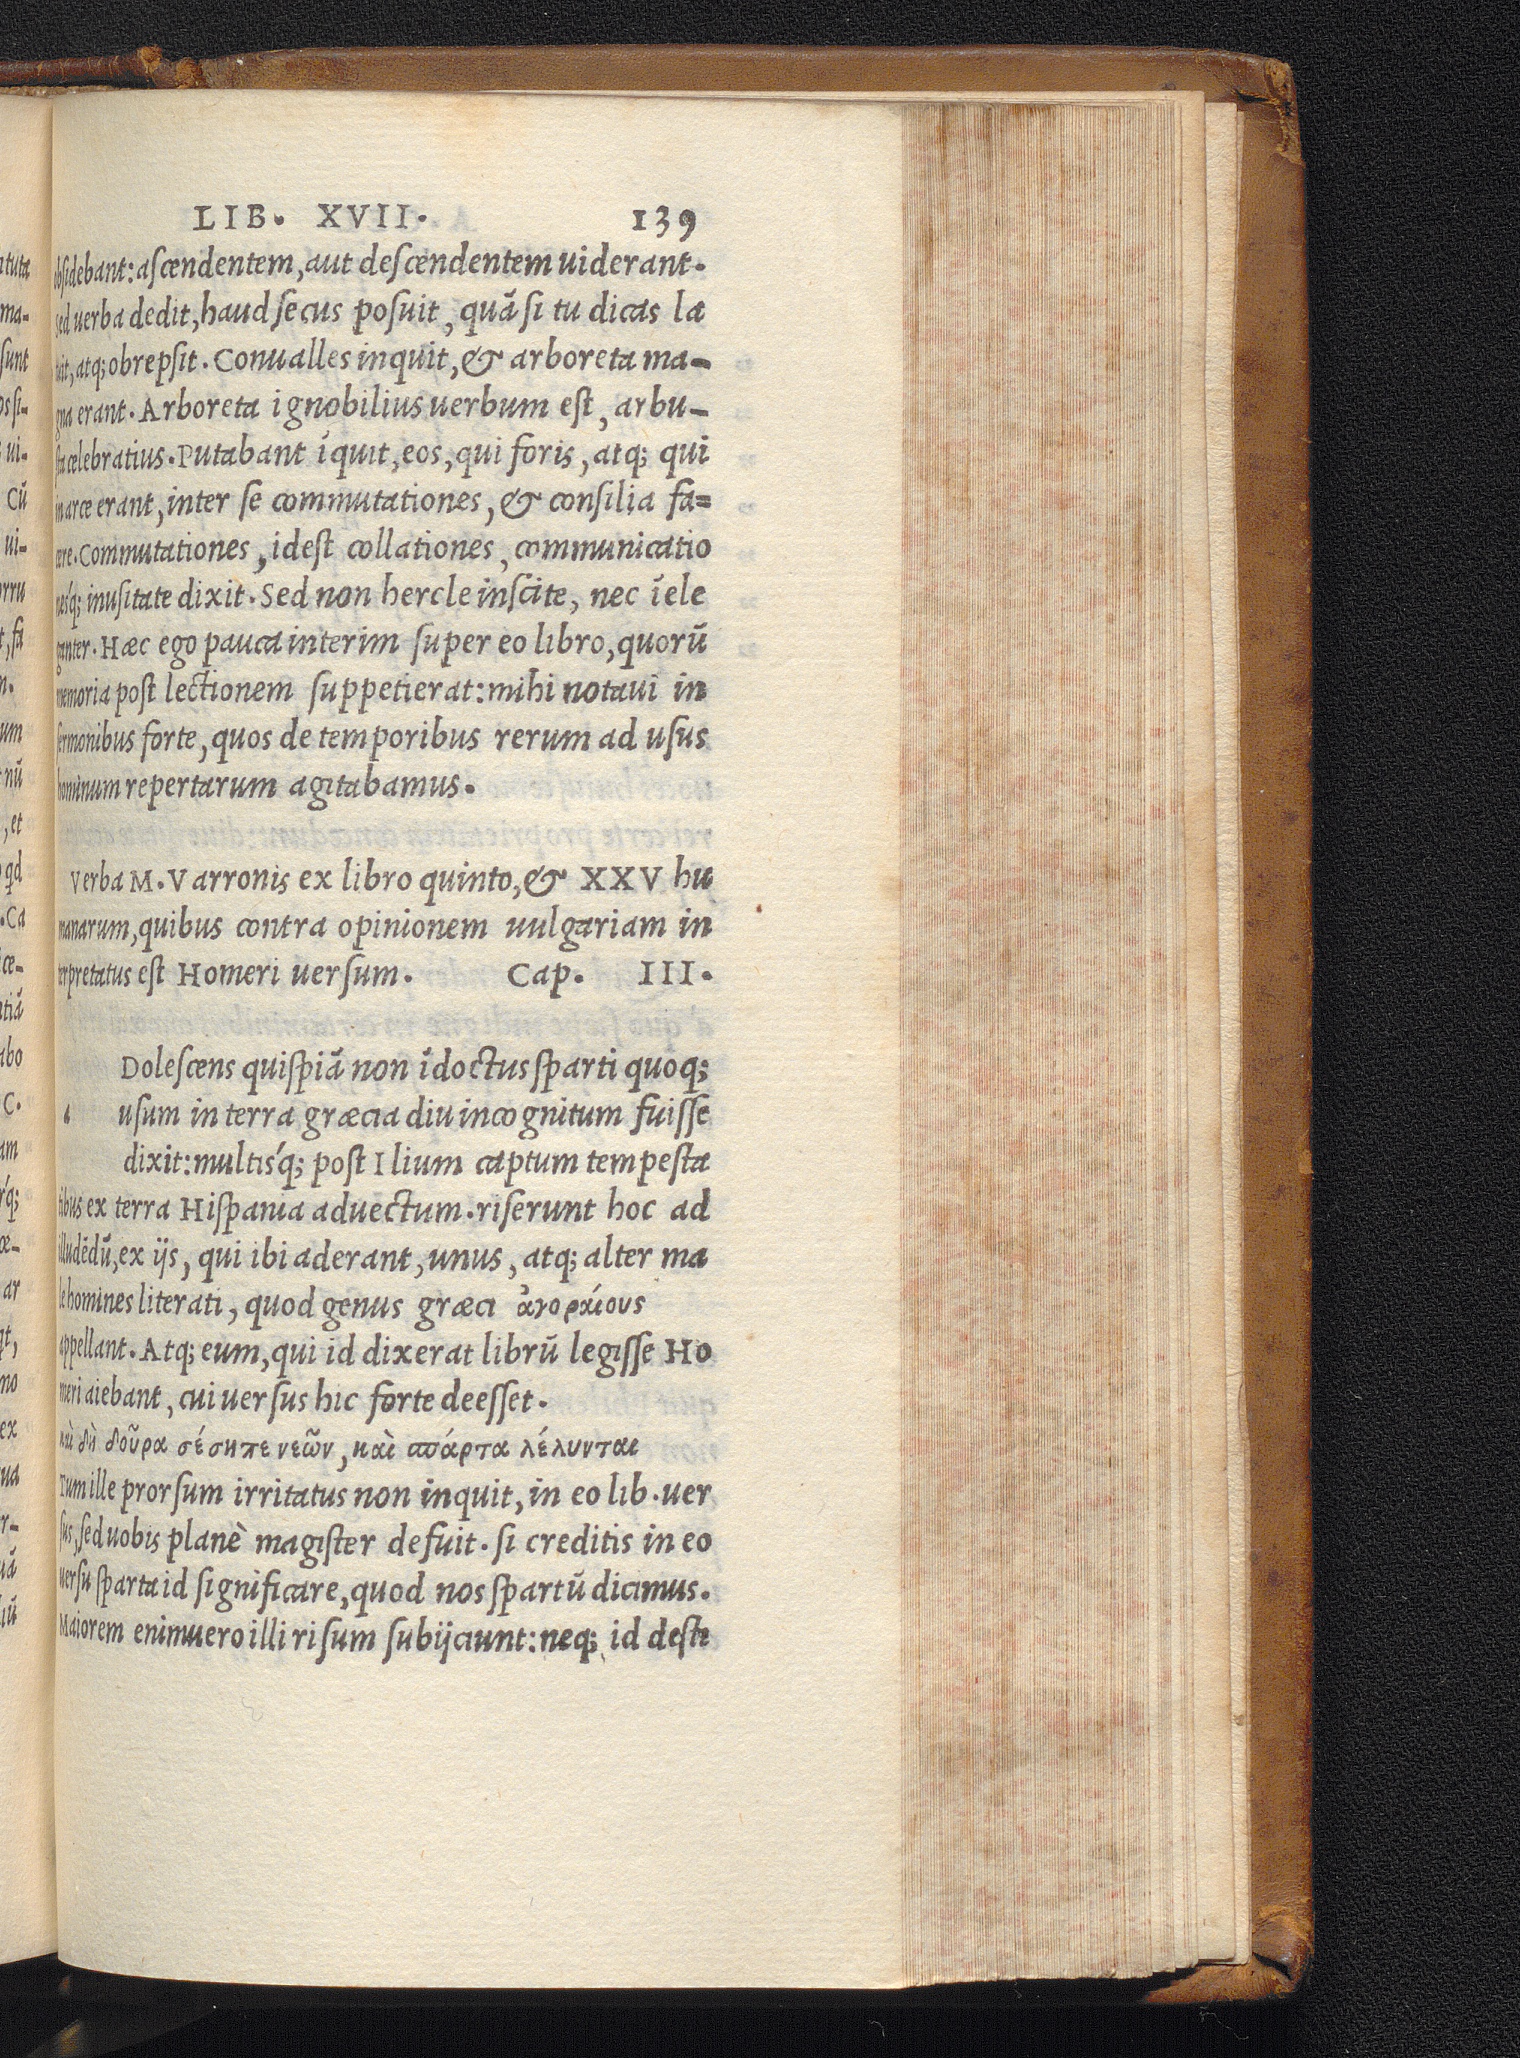 LIB. XVII. 139
obsidebant: ascendentem, aut descendentem uiderant.
sed uerba dedit, haud secus posuit, quã si tu dicas la
tuit, atq; obrepsit. Conualles inquit, & arboreta ma-
gna erant. Arboreta ignobilius uerbum est, arbu-
sta celebratius. Putabant ĩquit, eos, qui foris, atq; qui
in arce erant, inter se commutationes, & consilia fa-
cere. Commutationes, idest collationes, communicatio
nesq́; inusitate dixit. Sed non hercle inscite, nec ĩele
ganter. Hæc ego pauca interim super eo libro, quorũ
memoria post lectionem suppetierat: mihi notaui in
sermonibus forte, quos de temporibus rerum ad usus
hominum repertarum agitabamus.
Verba M. Varronis ex libro quinto, & XXV hu
manarum, quibus contra opinionem uulgariam in
terpretatus est Homeri uersum. Cap. III.
a Dolescens quispiã non ĩdoctus sparti quoq;
usum in terra græcia diu incognitum fuisse
dixit: multisq́; post Ilium captum tempesta
tibus ex terra Hispania aduectum. riserunt hoc ad
illudẽdũ, ex ijs, qui ibi aderant, unus, atq; alter ma
le homines literati, quod genus græci ἀγοραίους
appellant. Atq; eum, qui id dixerat librũ legisse Ho
meri aiebant, cui uersus hic forte deesset.
καὶ δὴ δοῦρα σέσηπε νεῶν, καὶ σπάρτα λέλυνται
Tum ille prorsum irritatus non inquit, in eo lib. uer
sus, sed uobis planè magister defuit. si creditis in eo
uersu sparta id significare, quod nos spartũ dicimus.
Maiorem enimuero illi risum subijciunt: neq; id desti